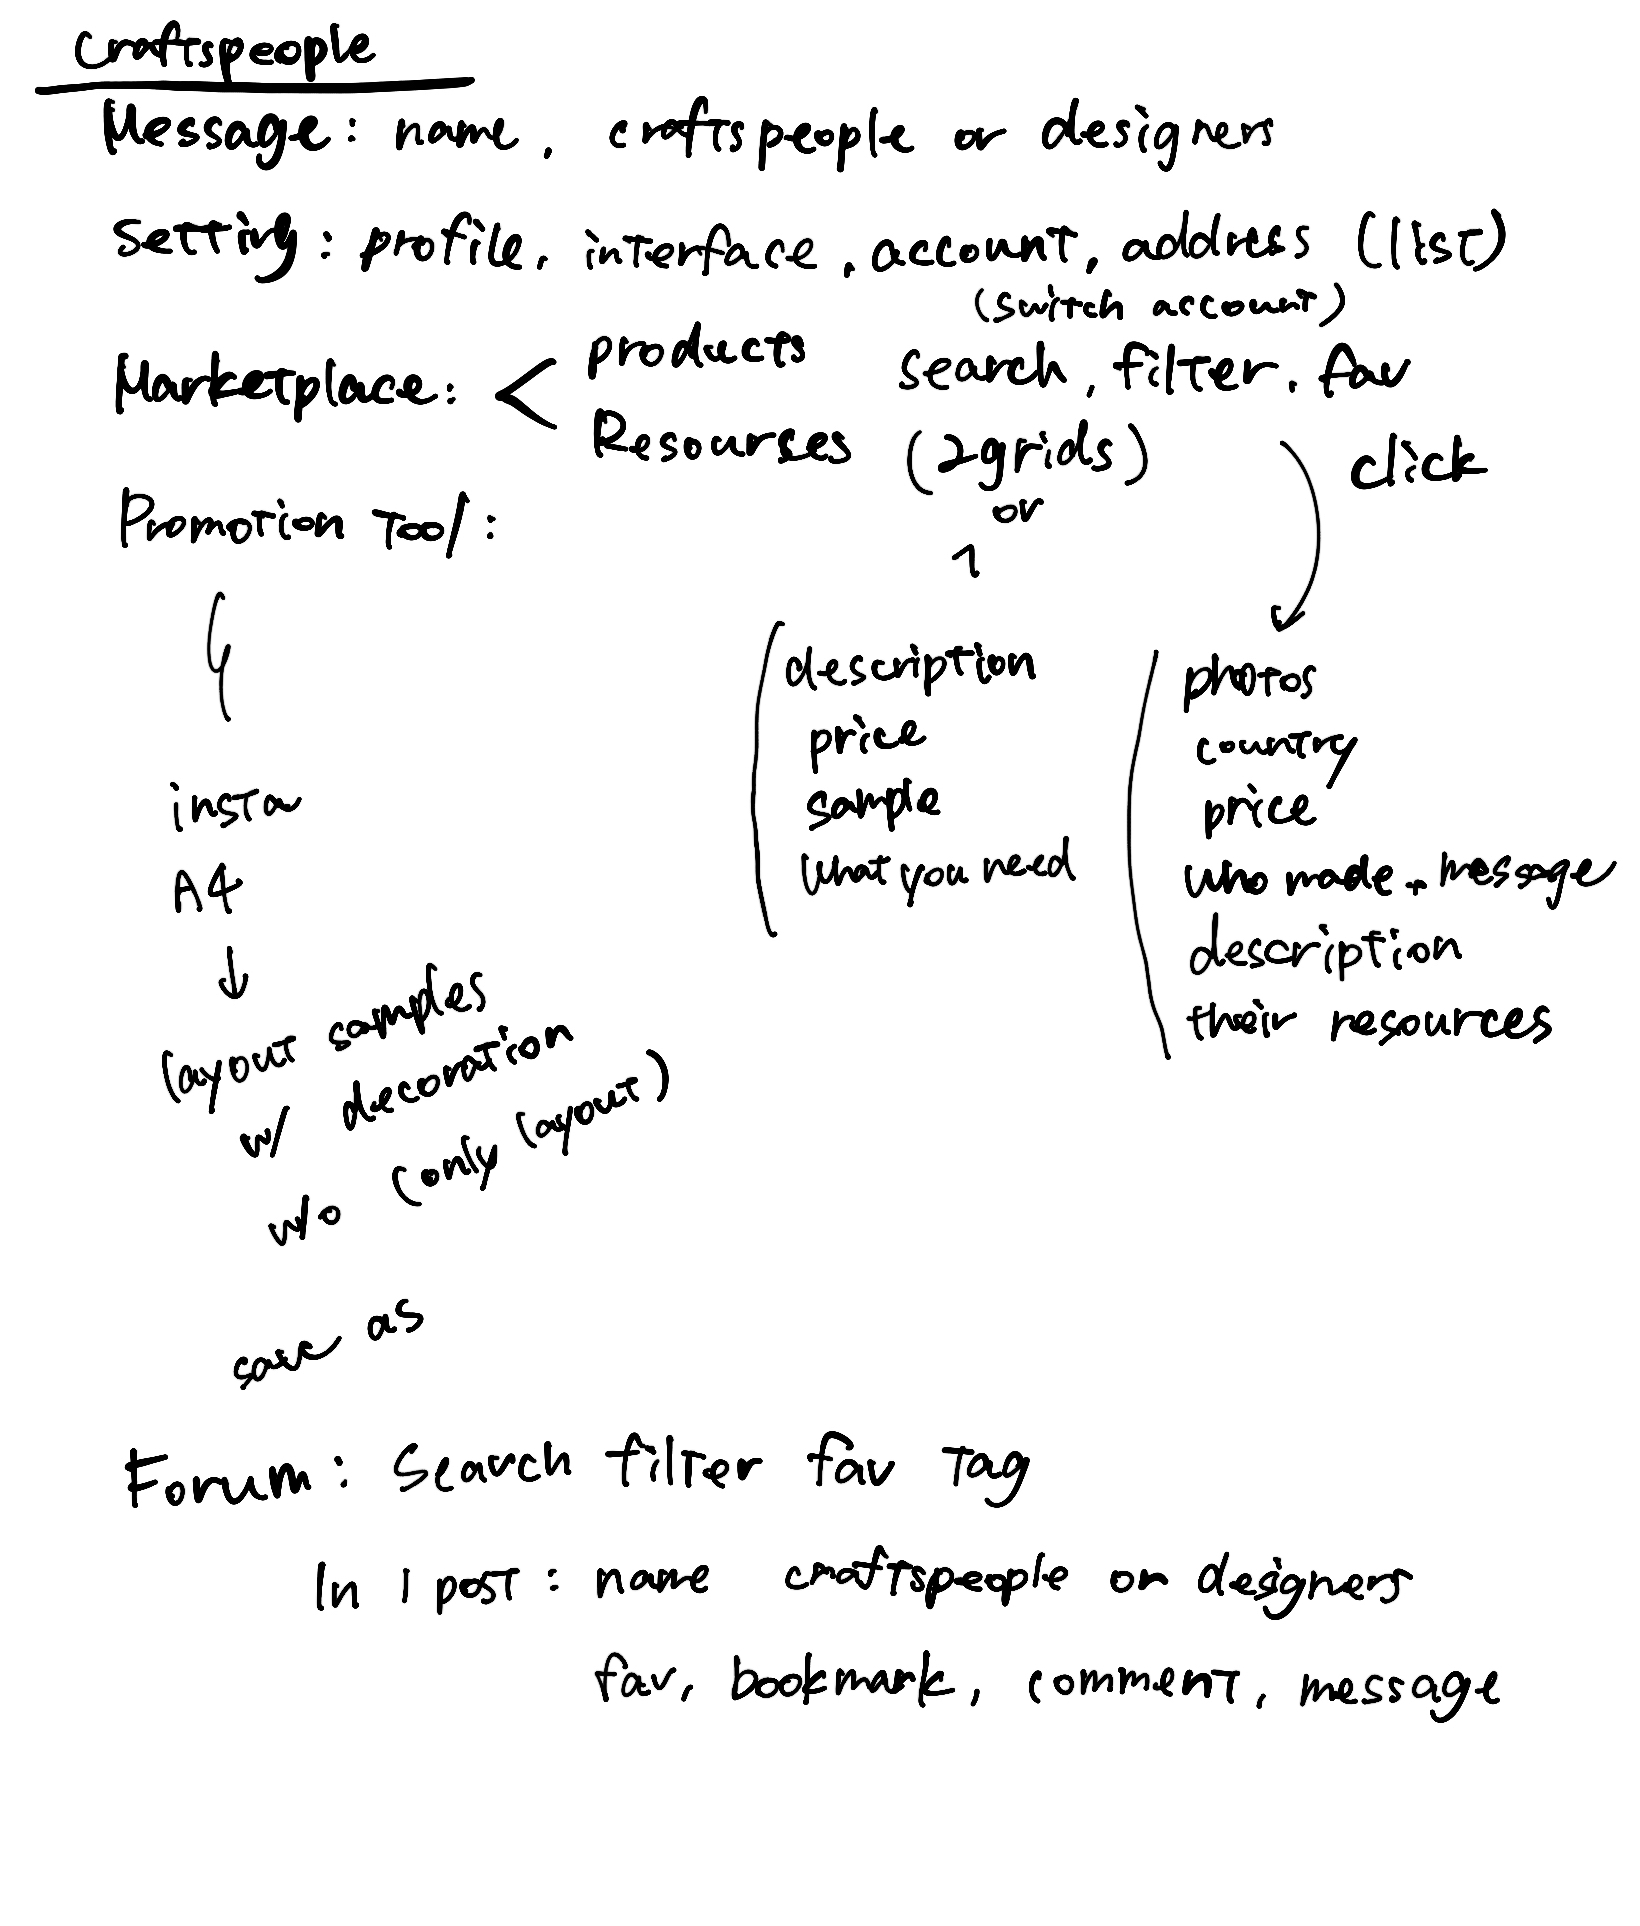 craftspeople
Message: name, craftspeople or designers
Setting: profile, interface, account, address (list)
(switch account)
Marketplace: < products search, filter, fav
Resourses (2grids) click
or
1
Promotion Tool:
description
price
sample
What you need
photos
country
price
who made → message
description
their resources
insta
A4
↓
layout samples
w/ decoration
w/o (only layout)
save as
Forum: Search filter fav Tag
In 1 post: name craftspeople or designers
fav, bookmark, comment, message